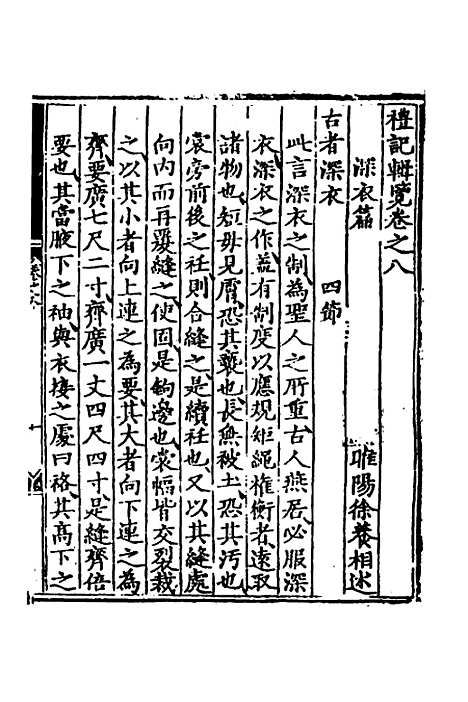 禮記輯覽卷之八
深衣篇
睢陽徐養相述
古者深衣 四節
此言深衣之制為聖人之所重古人燕居必服深
衣深衣之作蓋有制度以應規矩繩權衡者遠取
諸物也短毋見膚恐其褻也長無被土恐其汚也
裳旁前後之衽則合縫之是續衽也又以其縫處
向內而再覆縫之使固是鉤邊也裳幅皆交裂裁
之以其小者向上連之為要其大者向下連之為
齊要廣七尺二寸齊廣一丈四尺四寸是縫齊倍
要也其當腋下之袖與衣接之處曰袼其高下之